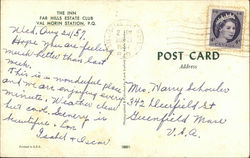 THE INN
FAR HILLS ESTATE CLUB
VAL MORIN STATION, P.Q.
Wed. Aug 24 57.
Hope you are feeling
much better than last
week.
This is a wonderful place
and we are enjoying every
minute. Weather clear
but cool. Scenery is
beautiful. Love
Isabel & Oscar
POST CARD
Address
Mrs. Harry Schouler
342 Deerfield St
Greenfield Mass
U.S.A.